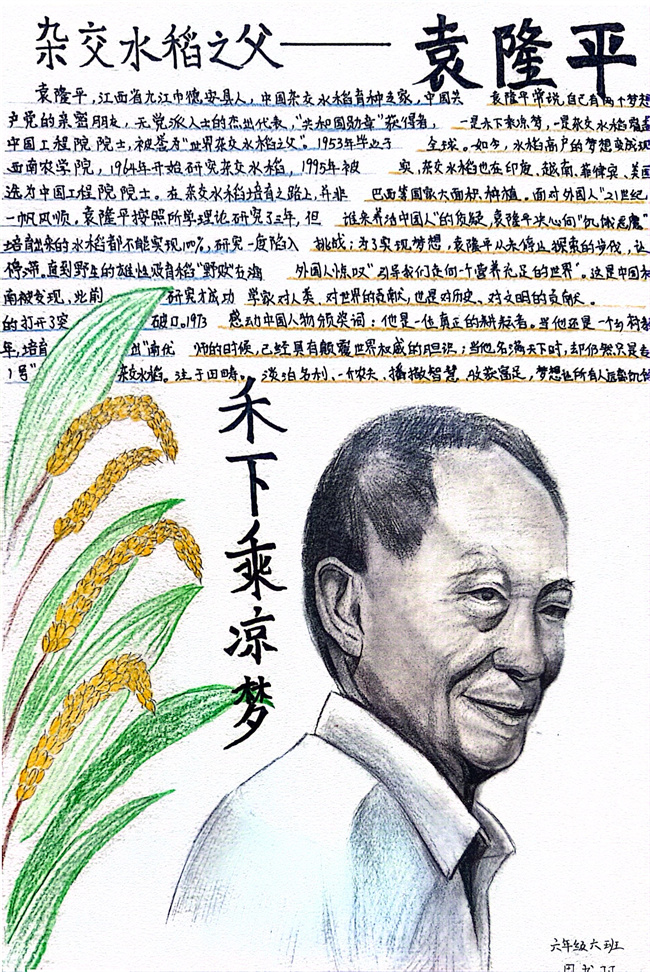 杂交水稻之父——袁隆平
袁隆平,江西省九江市德安县人,中国杂交水稻育种专家,中国共
产党的亲密朋友,无党派人士的杰出代表,"共和国勋章"获得者,
中国工程院院士,被誉为"世界杂交水稻之父"。1953年毕业于
西南农学院,1964年开始研究杂交水稻,1995年被
选为中国工程院院士。在杂交水稻培育之路上,并非
一帆风顺。袁隆平按照所学理论研究了三年,但
培育出来的水稻都不能实现100%,研究一度陷入
停滞。直到野生的雄性败育稻"野败"在海
南被发现,此前 研究才成功
的打开了突 破口。1973
年,培育 出"南优
1号" 杂交水稻。
袁隆平常说,自己有两个梦想
一是禾下乘凉梦,一是杂交水稻覆盖
全球。如今,水稻高产的梦想变成现
实,杂交水稻也在印度、越南、菲律宾、美国
巴西等国家大面积种植。面对外国人"21世纪
谁来养活中国人"的质疑,袁隆平决心向"饥饿恶魔"
挑战;为了实现梦想,袁隆平从未停止探索的步伐,让
外国人惊叹"引导我们走向一个营养充足的世界"。这是中国科
学家对人类、对世界的贡献,也是对历史、对文明的贡献。
感动中国人物颁奖词:他是一位真正的耕耘者。当他还是一个乡村教
师的时候,已经具有颠覆世界权威的胆识;当他名满天下时,却仍然只是专
注于田畴。淡泊名利,一介农夫,播撒智慧,收获富足,梦想让所有人远离饥饿
禾下乘凉梦
六年级六班